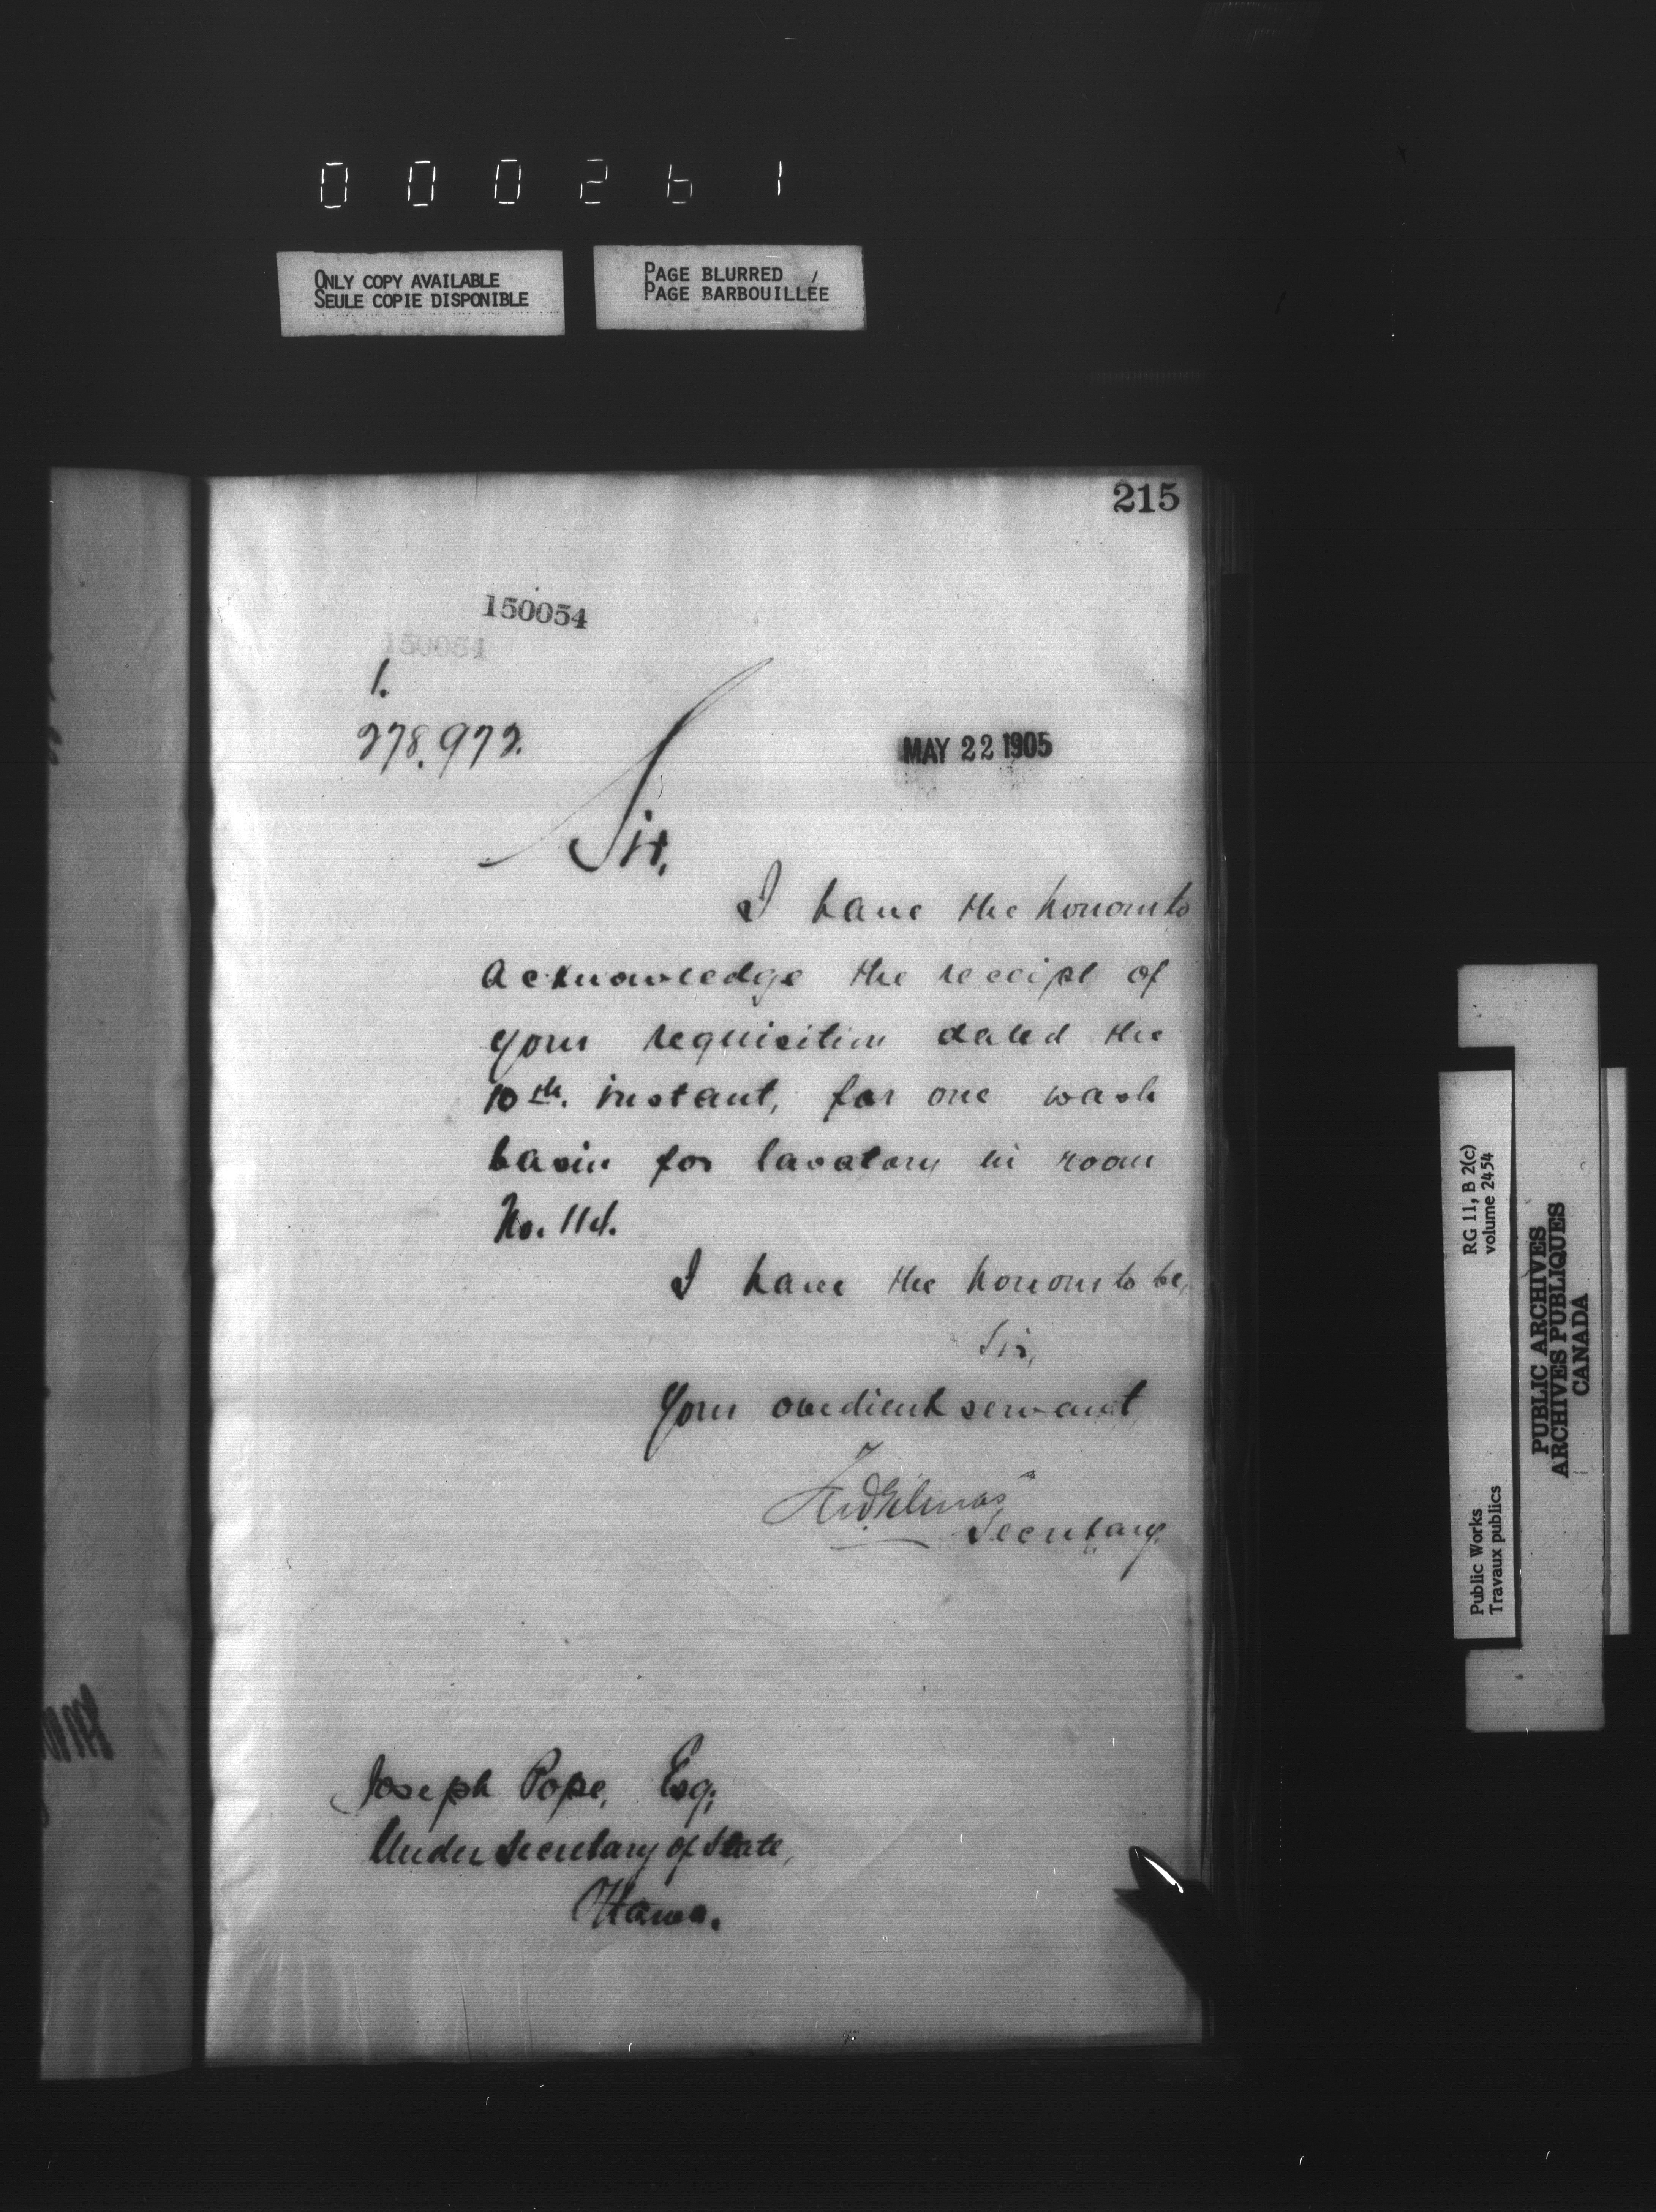 000261
ONLY COPY AVAILABLE
SEULE COPIE DISPONIBLE
PAGE BLURRED
PAGE BARBOUILLÉE
215
150054
150054
1.
278.972.
MAY 22 1905
Sir,
I have the honour to
acknowledge the receipt of
your requisition dated the
10th. instant, for one wash
basin for lavatory in room
No. 114.
I have the honour to be,
Sir,
Your obedient servant,
Secretary.
Joseph Pope, Esq;
Under Secretary of State,
Ottawa.
RG 11, B 2(c)
volume 2454
Public Works
Travaux publics
PUBLIC ARCHIVES
ARCHIVES PUBLIQUES
CANADA